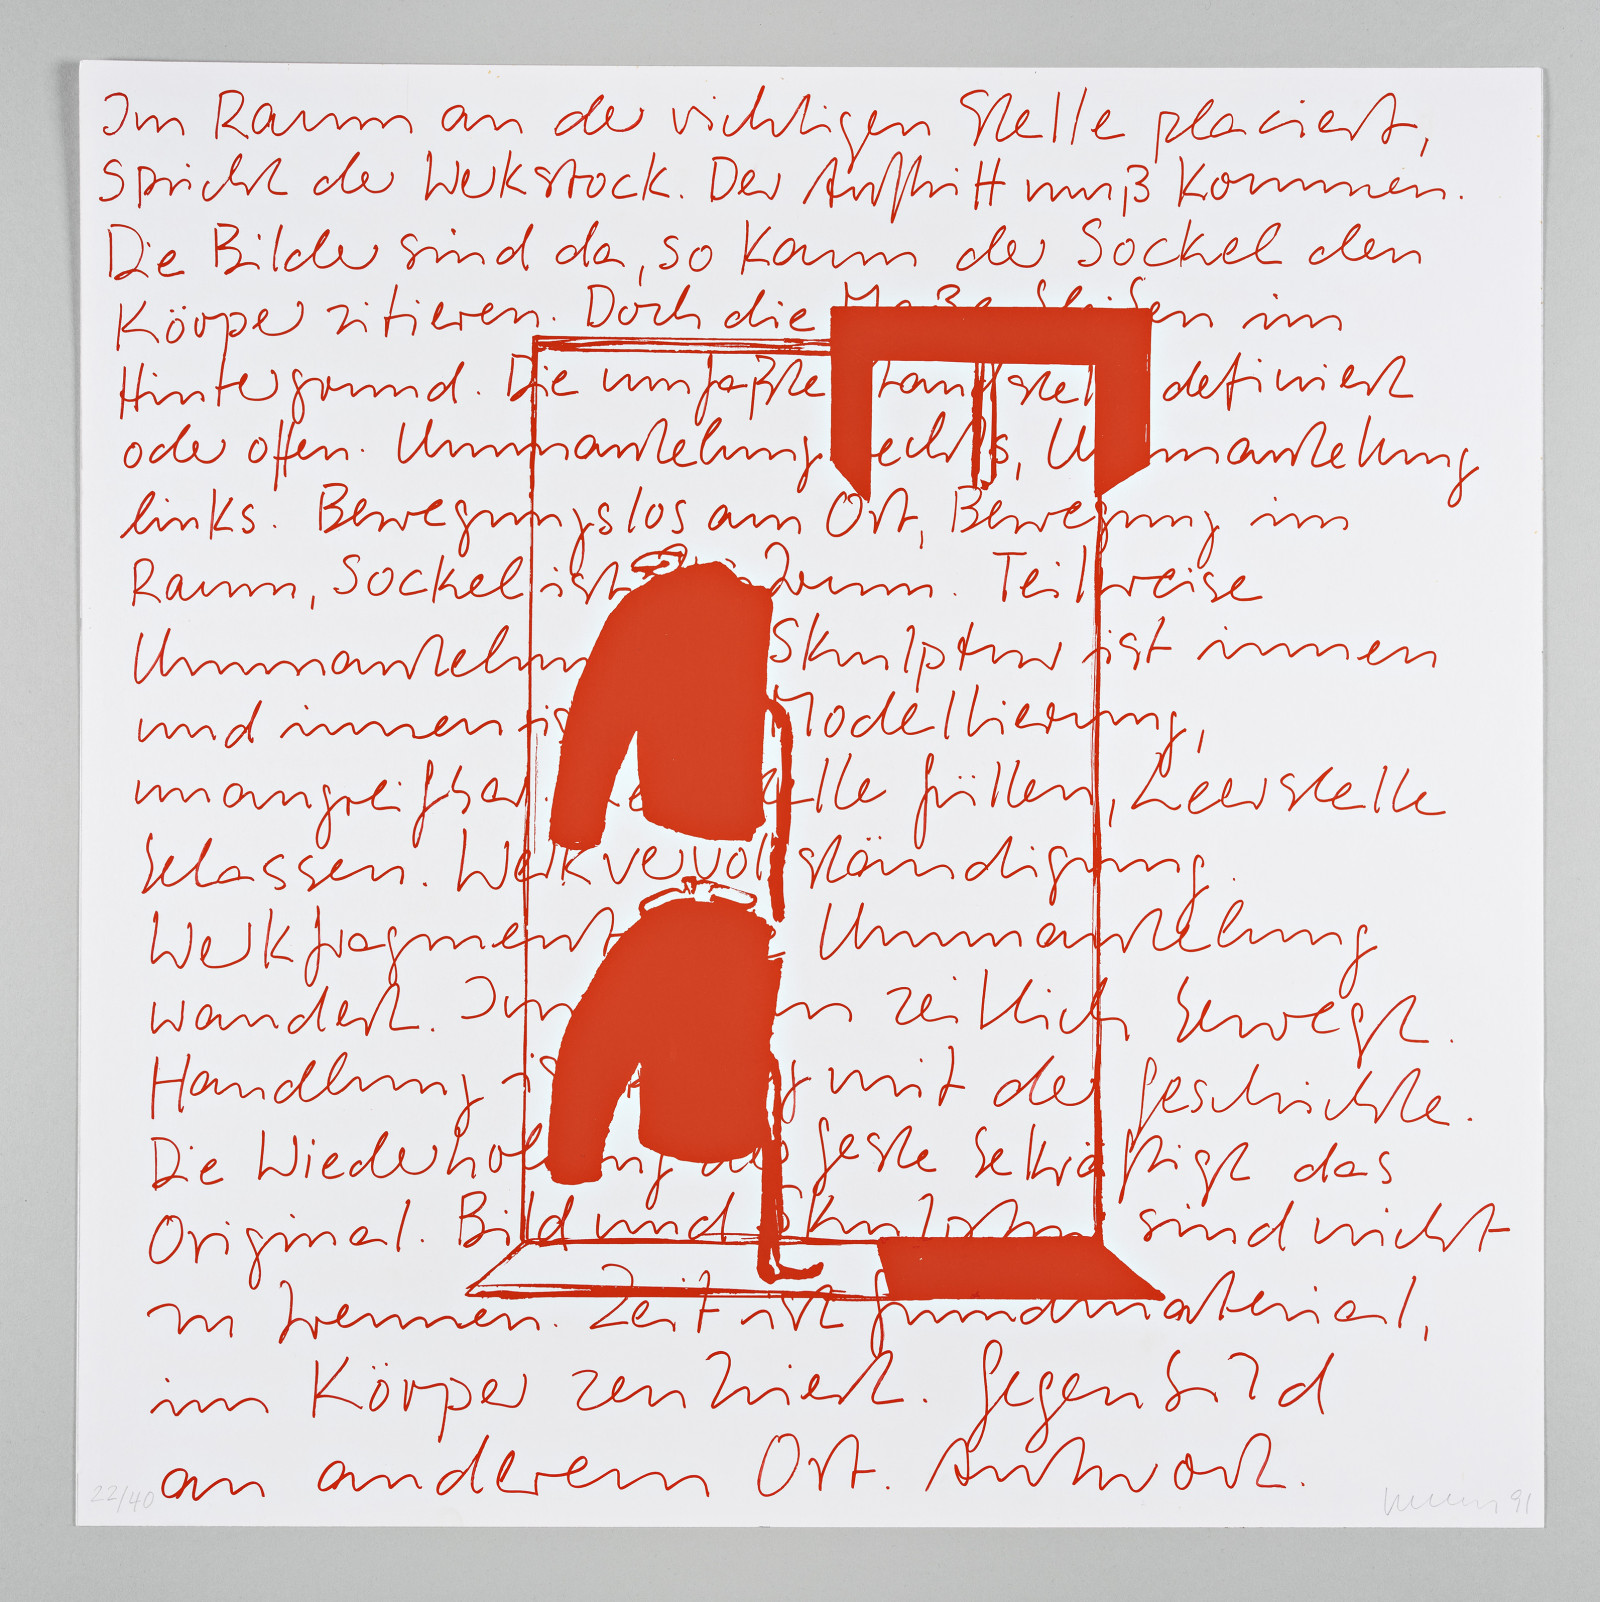 Im Raum an der richtigen Stelle placiert,
spricht der Werkstock. Der Auftritt muß kommen.
Die Bilder sind da, so kann der Sockel den
Körper zitieren. Doch die Maße bleiben im
Hintergrund. Die umfaßte Standstelle definiert
oder offen. Ummantelung rechts, Ummantelung
links. Bewegungslos am Ort, Bewegung im
Raum, Sockel ist Teilweise
Ummantelung Skulptur ist innen
und innen ist Modellierung,
unangreifbar. Leerstelle füllen, Leerstelle
belassen. Werkvervollständigung.
Werkfragment Ummantelung
wandert. Im zeitlich bewegt.
Handlung ist mit der Geschichte.
Die Wiederholung der Geste bekräftigt das
Original. Bild und Skulptur sind nicht
zu trennen. Zeit ist Grundmaterial,
im Körper zentriert. Gegenbild
an anderem Ort. Antwort.
22/40 91